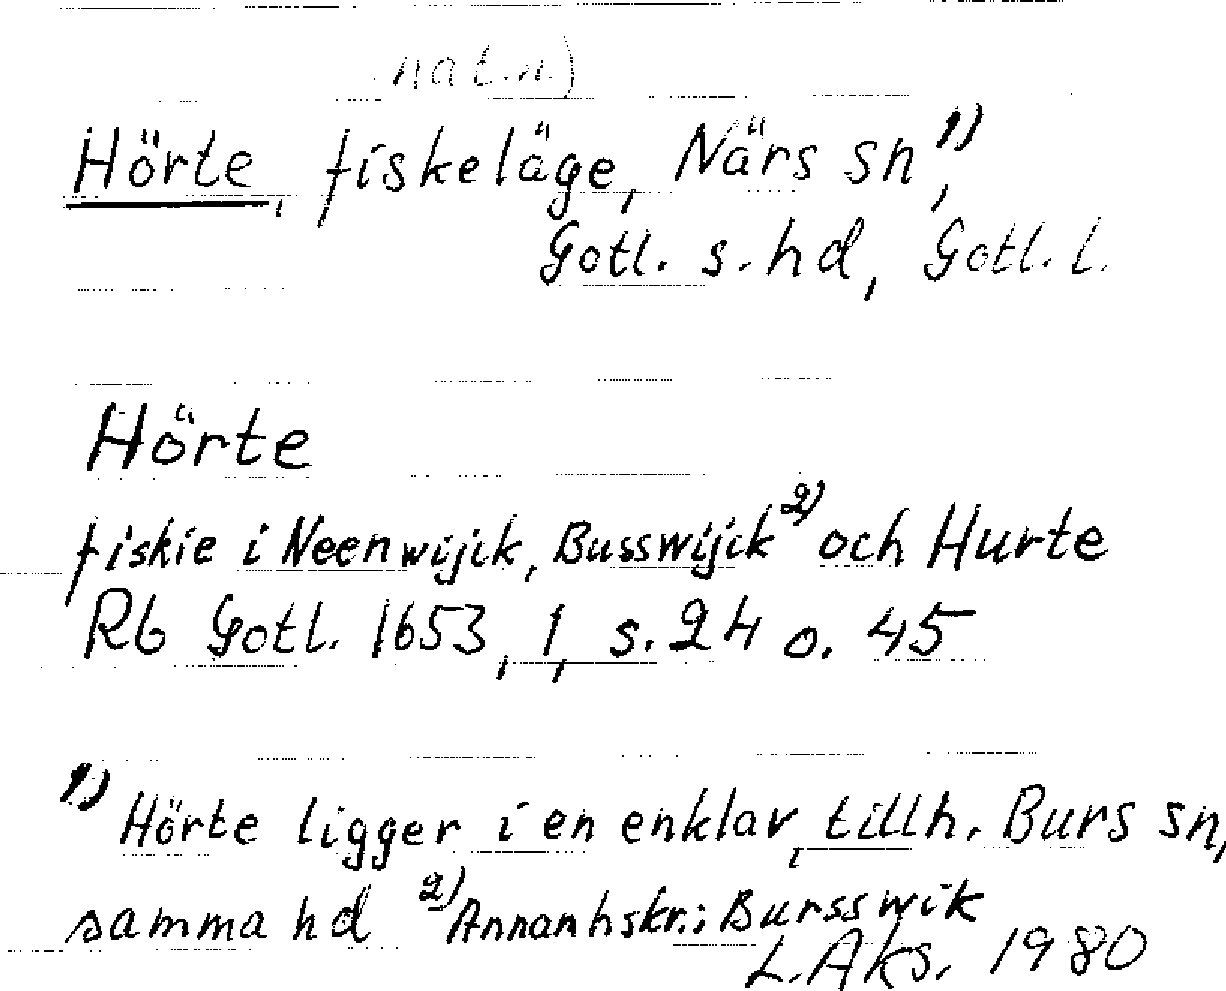 nat.n)
Hörte, fiskeläge, Närs sn 1),
Gotl. s. hd, Gotl. l.
Hörte
fiskie i Neenwijik, Busswijck 2) och Hurte
Rb Gotl. 1653, 1, s. 24 o. 45
1) Hörte ligger i en enklav, tillh. Burs sn,
samma hd 2) Annanhskr.: Bursswik
L. Aks. 1980